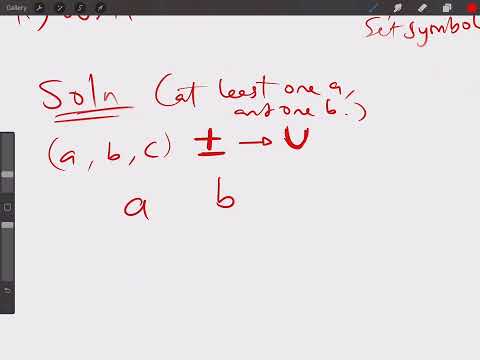 Gallery
Set symbol
Soln (at least one a,
and one b.)
(a, b, c) + → ∪
a b